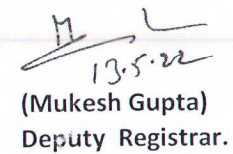 13.5.22
(Mukesh Gupta)
Deputy Registrar.